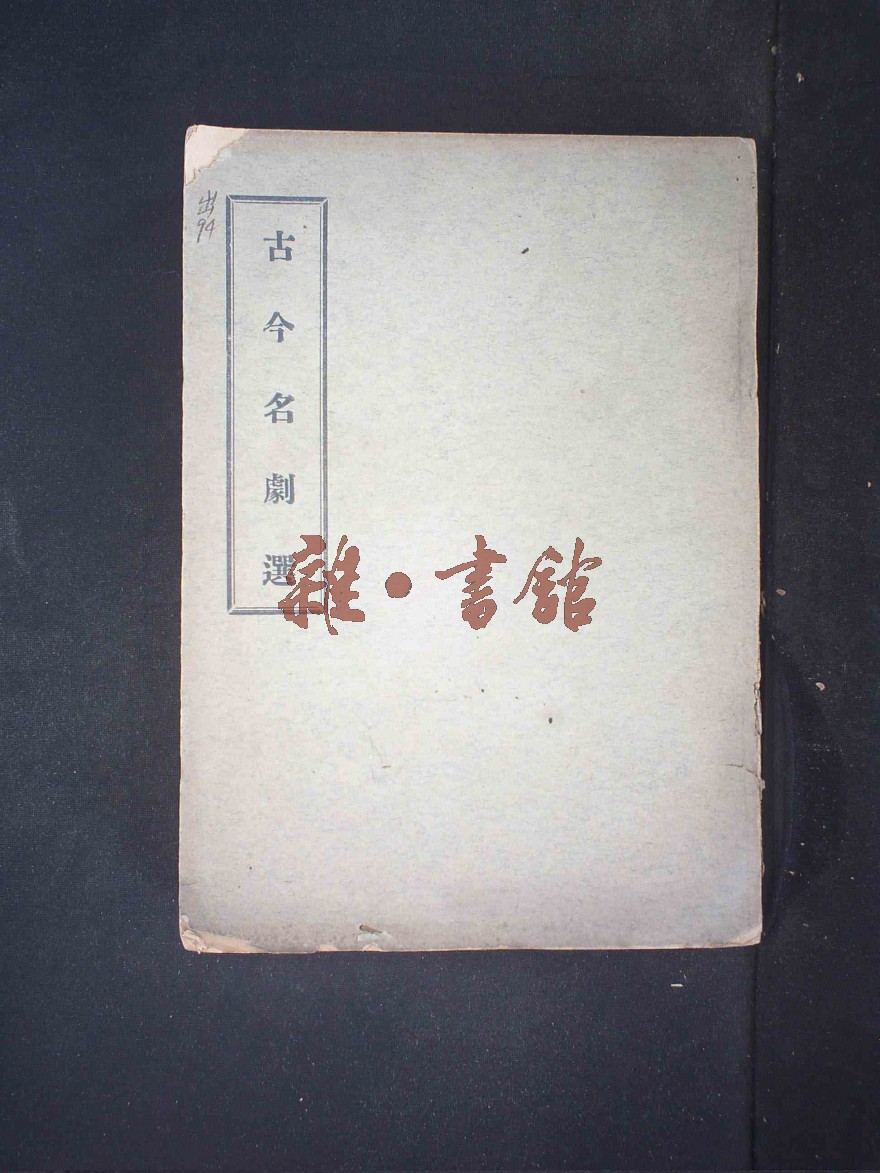 古今名劇選
出
94
雜·書館